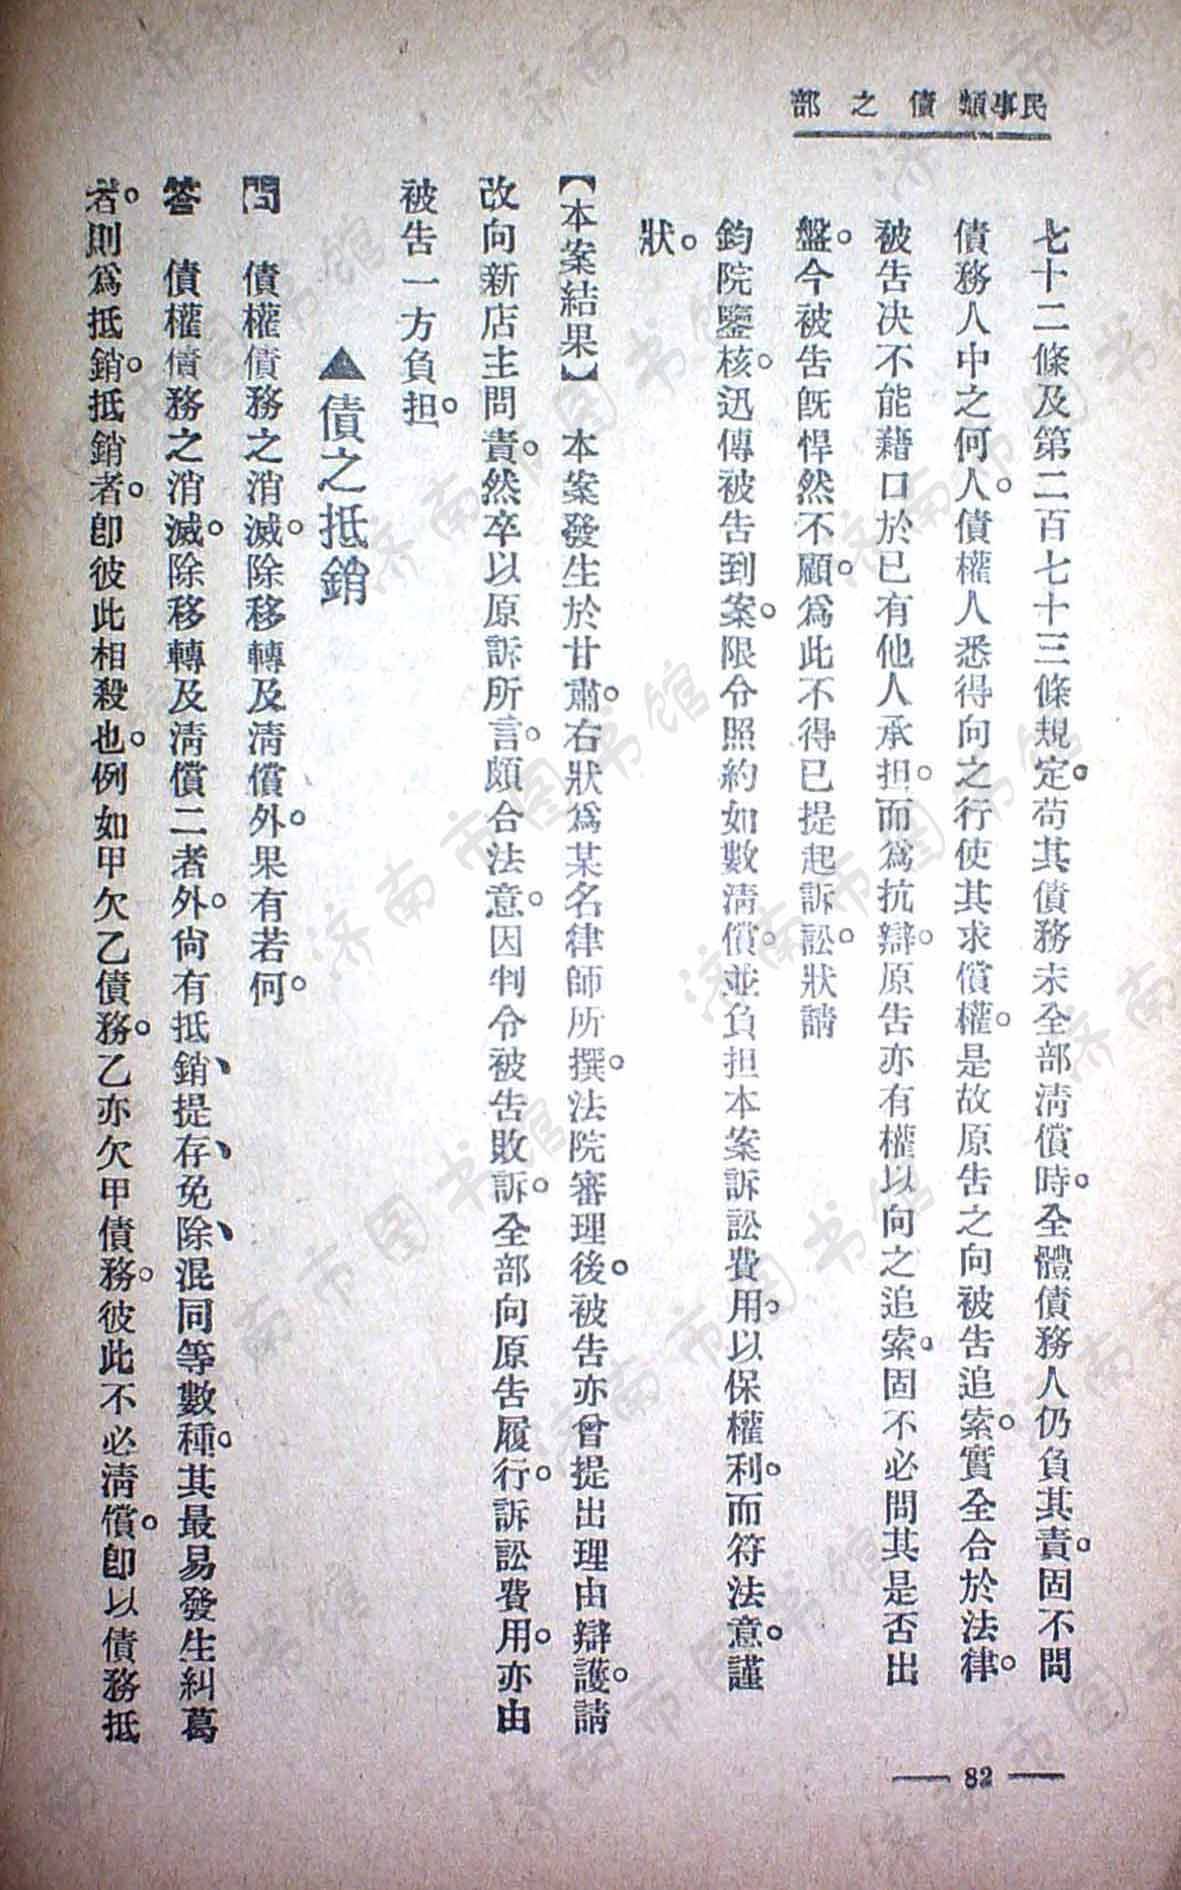 民事類債之部
七十二條及第二百七十三條規定。苟其債務未全部清償時。全體債務人仍負其責。固不問
債務人中之何人。債權人悉得向之行使其求償權。是故原告之向被告追索。實全合於法律。
被告决不能藉口於已有他人承担。而爲抗辯。原告亦有權以向之追索。固不必問其是否出
盤。今被告旣悍然不顧。爲此不得已提起訴訟。狀請
鈞院鑒核。迅傳被告到案。限令照約如數清償。並負担本案訴訟費用。以保權利。而符法意。謹
狀。
【本案結果】　本案發生於甘肅。右狀爲某名律師所撰。法院審理後。被告亦曾提出理由辯護。請
改向新店主問責。然卒以原訴所言。頗合法意。因判令被告敗訴。全部向原告履行。訴訟費用。亦由
被告一方負担。
▲債之抵銷
問　債權債務之消滅。除移轉及清償外。果有若何。
答　債權債務之消滅。除移轉及清償二者外。尙有抵銷、提存、免除、混同等數種。其最易發生糾葛
者。則爲抵銷。抵銷者。卽彼此相殺也。例如甲欠乙債務。乙亦欠甲債務。彼此不必清償。卽以債務抵
— 82 —
济南市图书馆